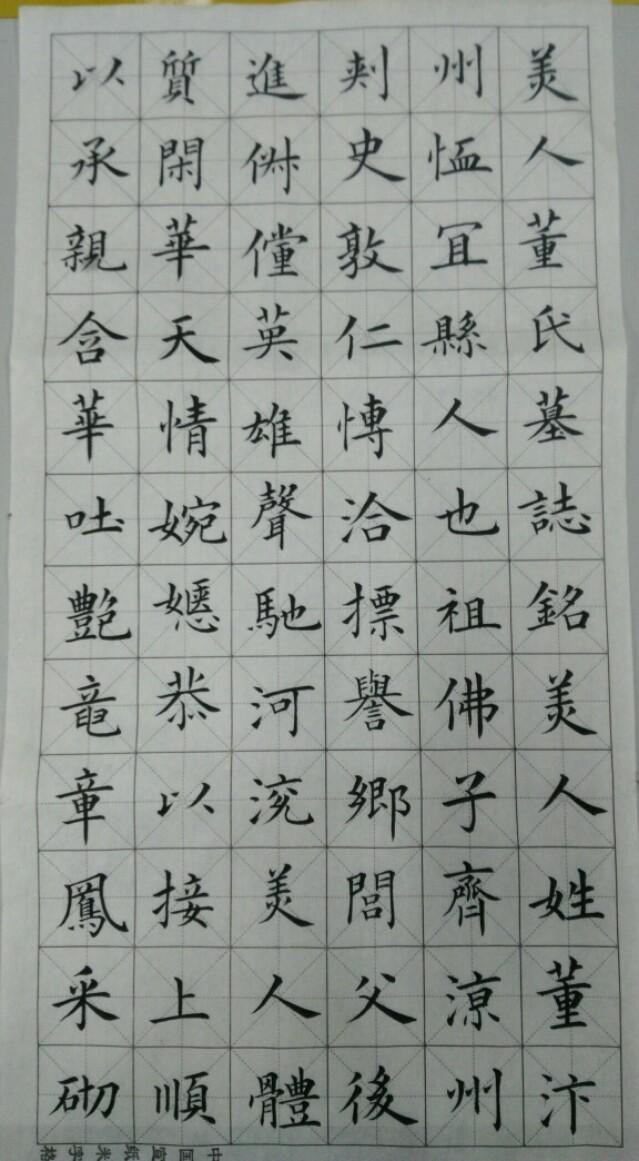 美人董氏墓誌銘美人姓董汴
州恤冝縣人也祖佛子齊涼州
刾史敦仁愽洽摽譽鄉閭父後
進俶儻英雄聲馳河沇美人體
質閑華天情婉嫕恭以接上順
以承親含華吐艷竜章鳳采砌
中国宣纸米字格